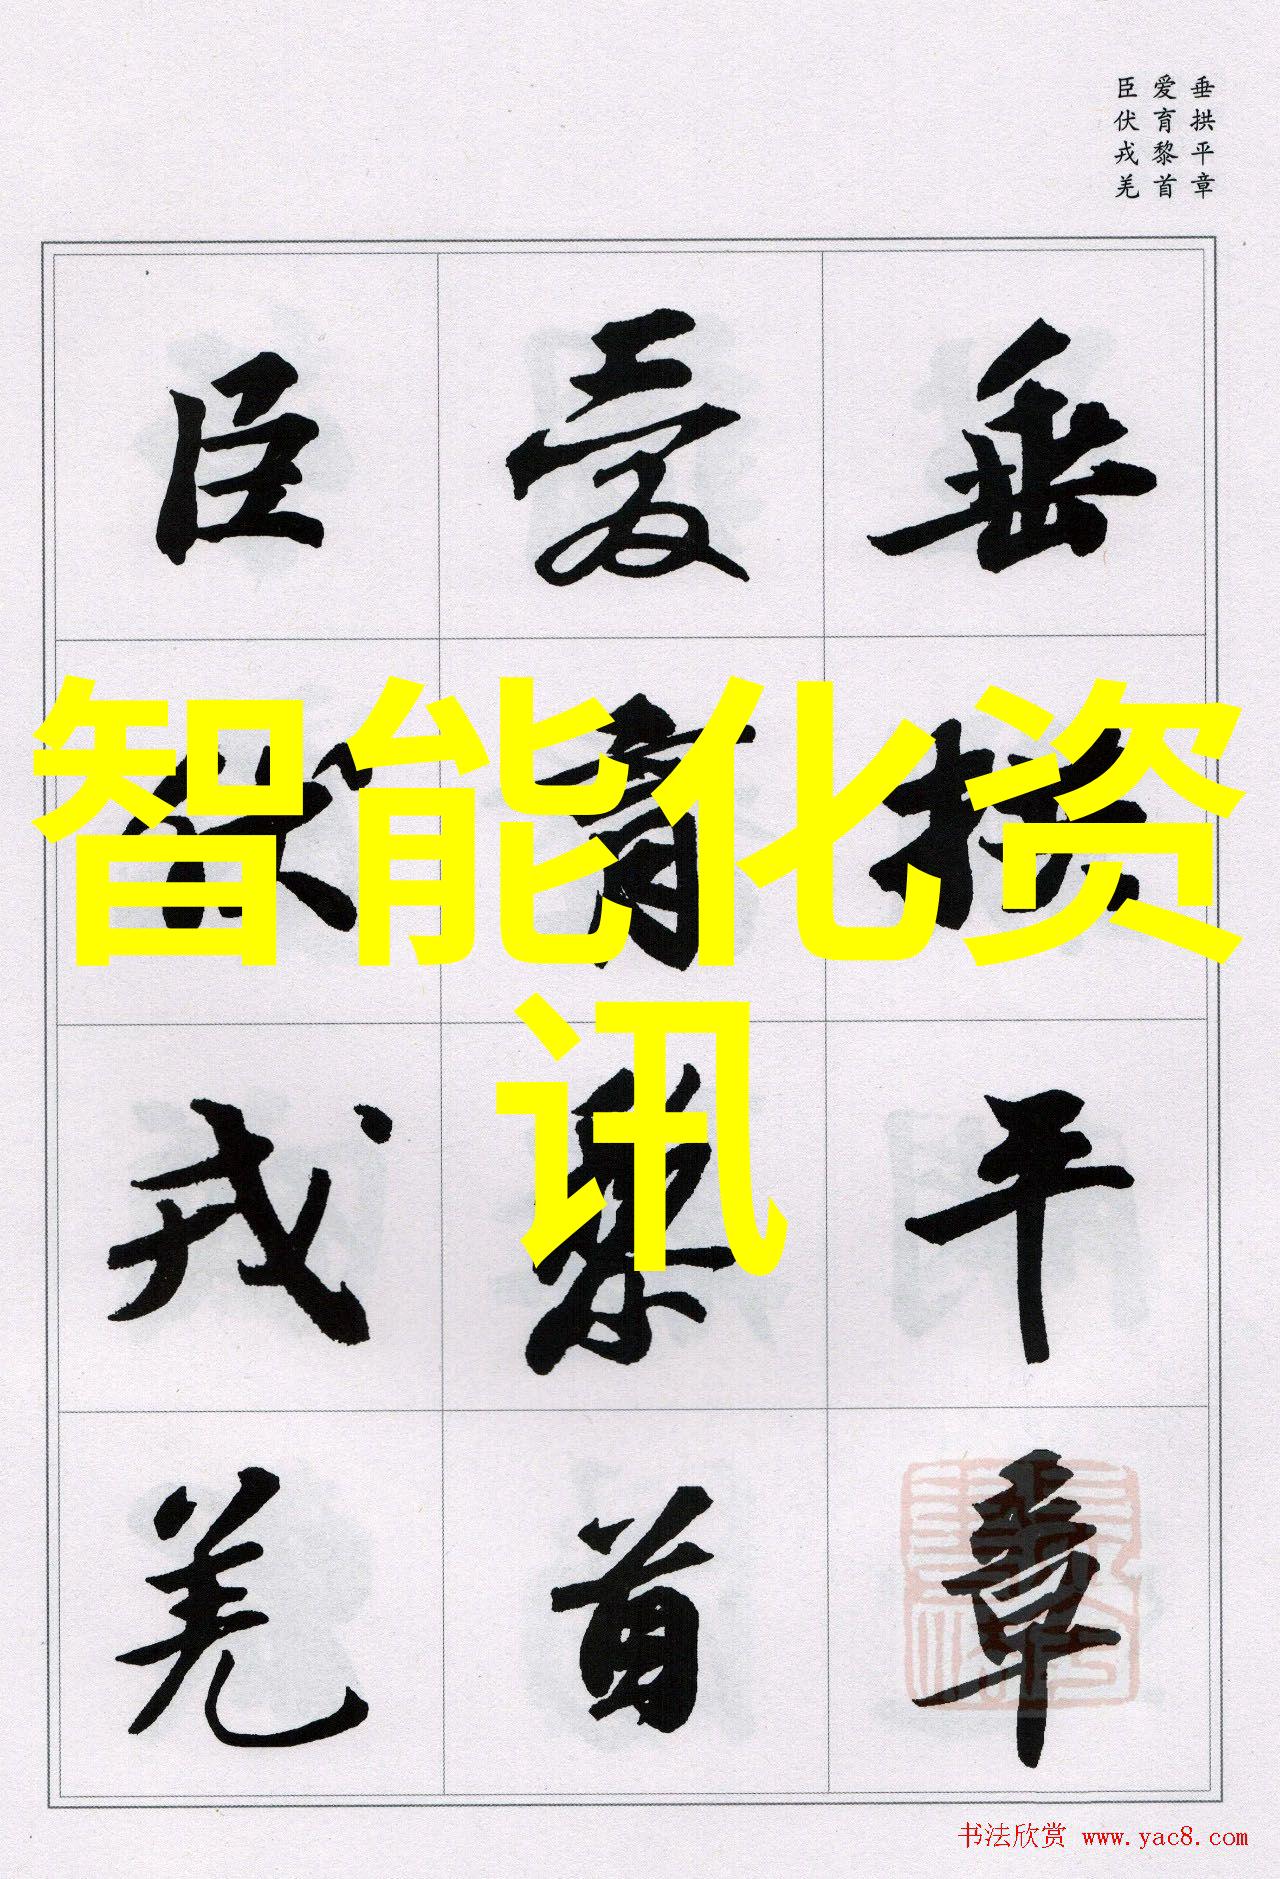 垂拱平章
爱育黎首
臣伏戎羌
垂拱平章
爱育黎首
臣伏戎羌
智能化资
讯
书法欣赏 www.yac8.com